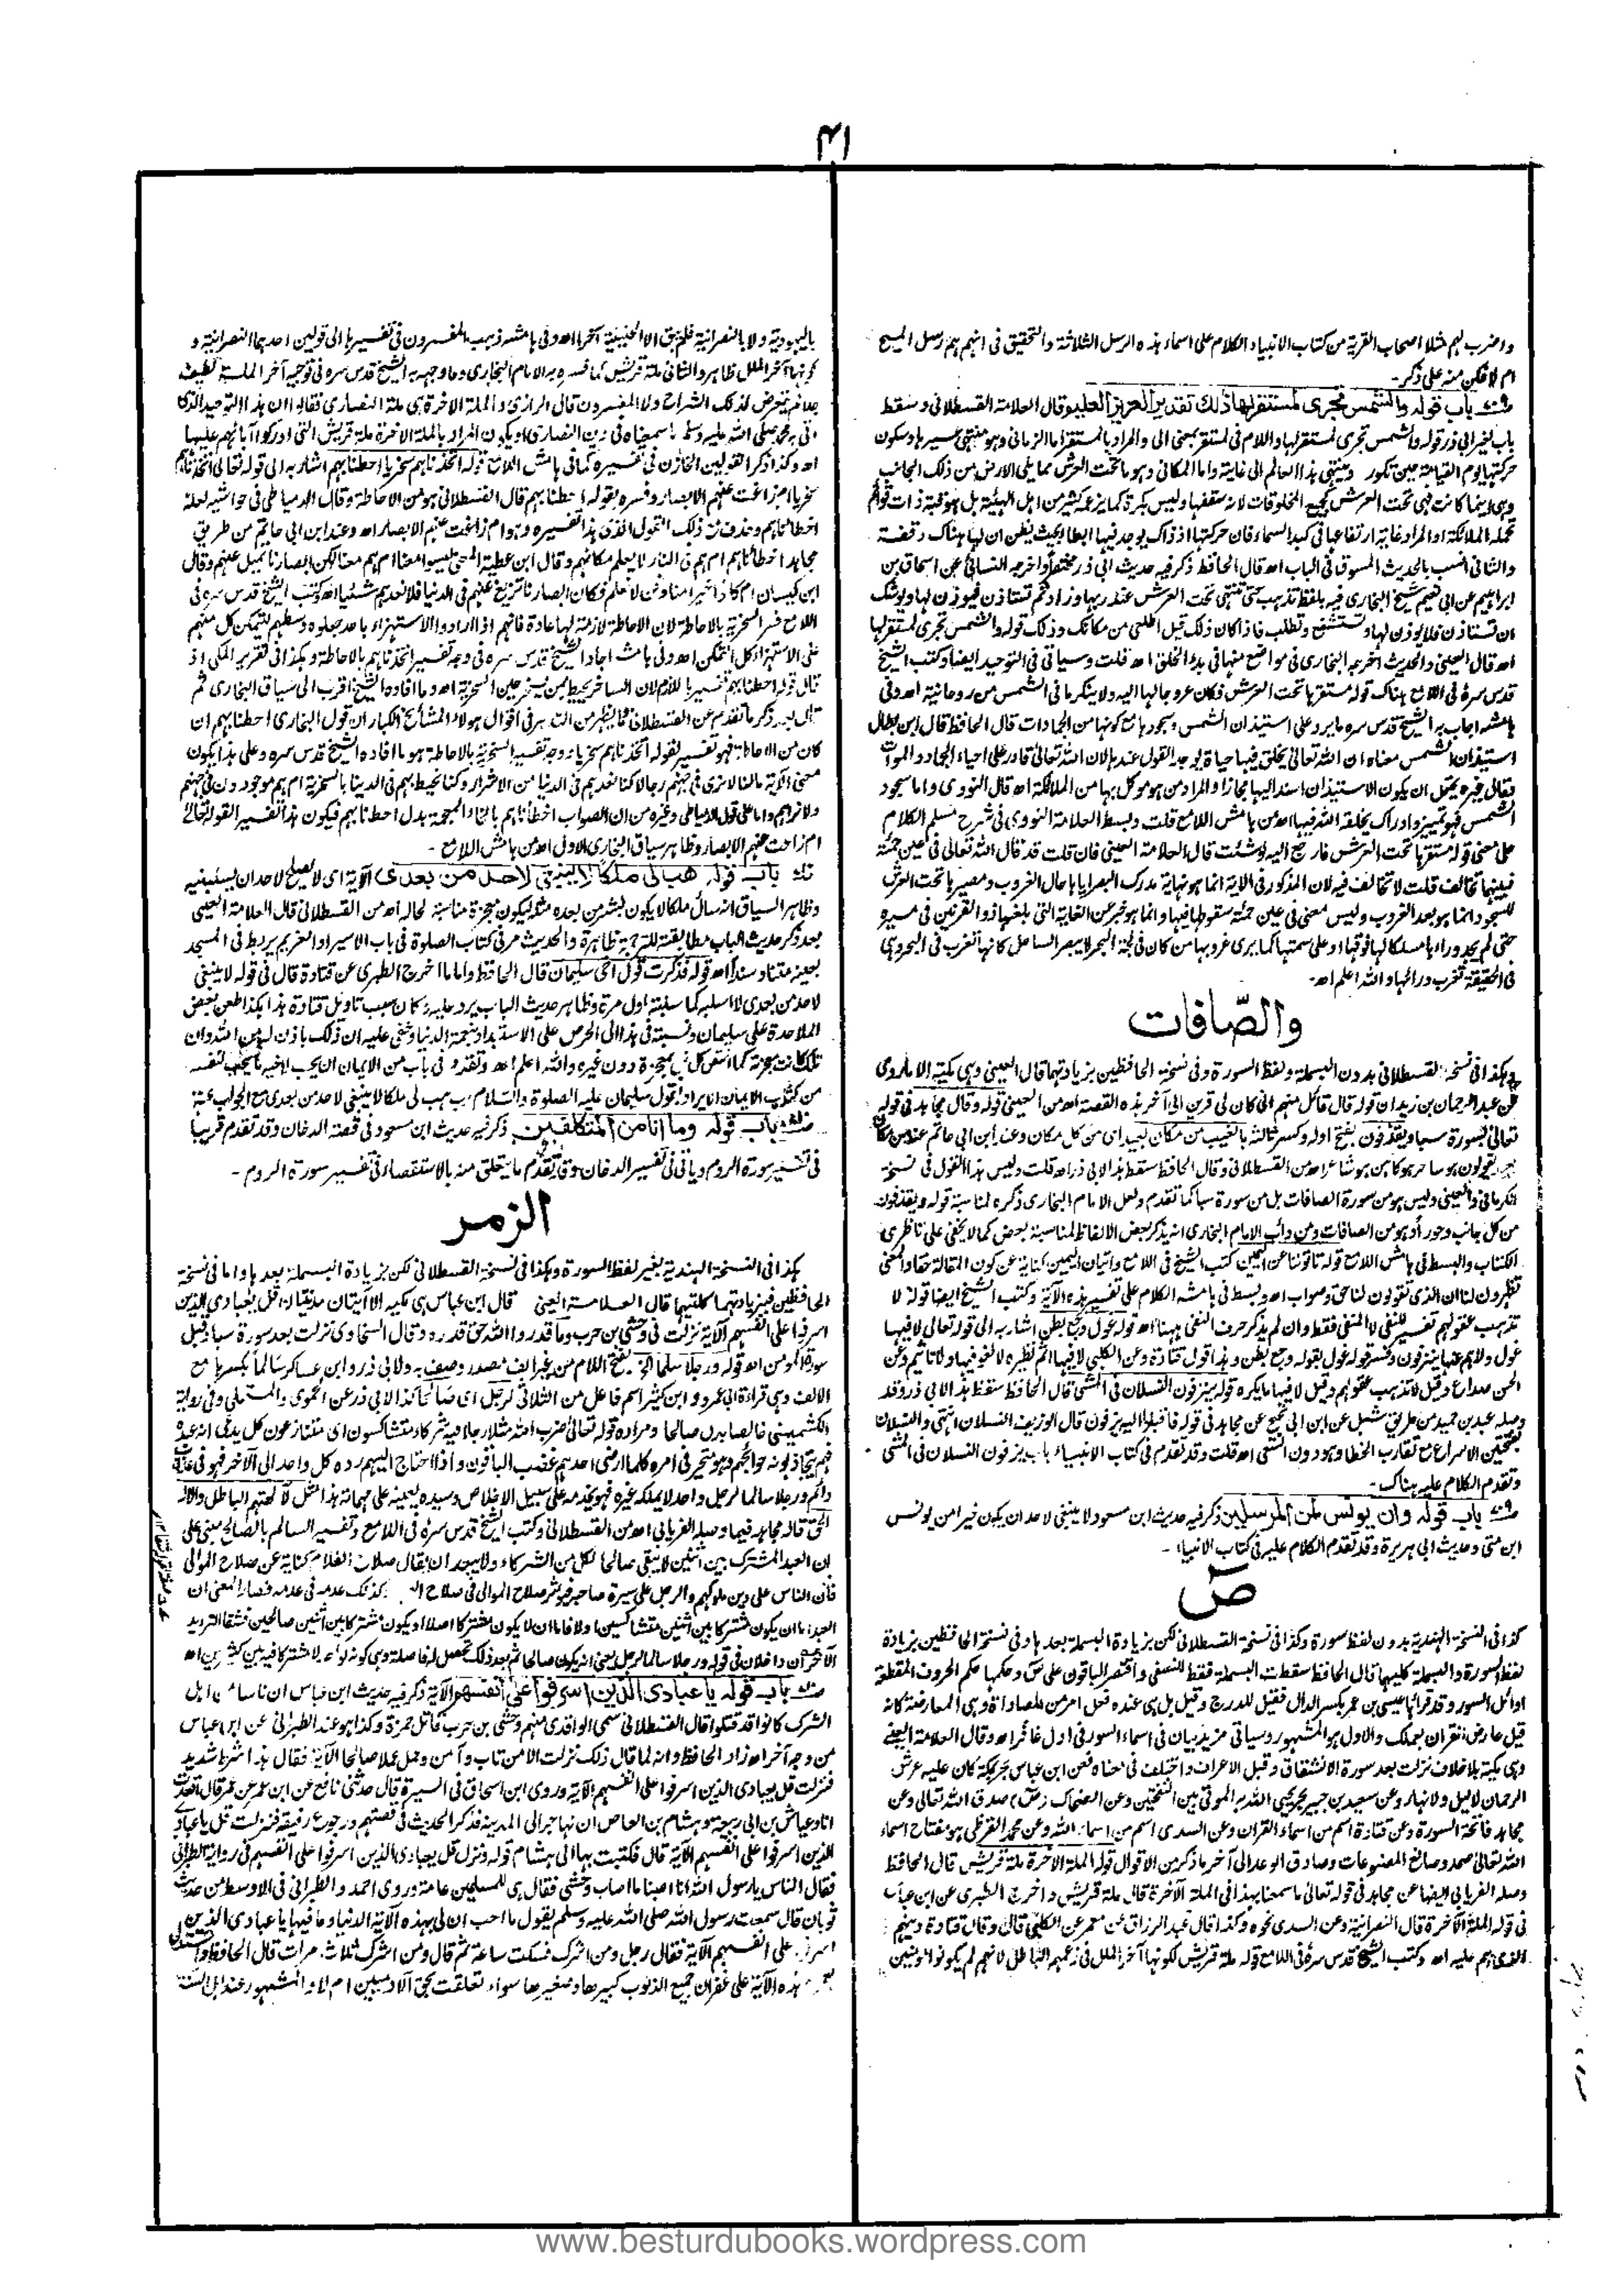 ۴۱
واضرب لہم مثلا اصحاب القریۃ من کتاب الانبیاء الکلام علی اسماء ہذہ الرسل الثلاثۃ والتحقیق فی انہم ہم رسل المسیح
ام لا فکن منہ علی ذکر۔
باب قولہ والشمس تجری لمستقر لہا ذلک تقدیر العزیز العلیم وقال العلامۃ القسطلانی وسقط
باب لغیر ابی ذر قولہ والشمس تجری لمستقر لہا واللام فی لمستقر بمعنی الی والمراد بالمستقر اما الزمانی وہو منتہی سیرہا وسکون
حرکتہا یوم القیامۃ حین تکور وینتہی ہذا العالم الی غایتہ واما المکانی وہو ما تحت العرش مما یلی الارض من ذلک الجانب
وہی اینما کانت فہی تحت العرش کجمیع المخلوقات لانہ سقفہا ولیس بکرۃ کما یزعمہ کثیر من اہل الہیئۃ بل ہو قبۃ ذات قوائم
تحملہ الملائکۃ او المراد غایۃ ارتفاعہا فی کبد السماء فان حرکتہا اذ ذاک یوجد فیہا ابطاء بحیث یظن ان لہا ہناک وقفۃ
والثانی انسب بالحدیث المسوق فی الباب اھ قال الحافظ ذکر فیہ حدیث ابی ذر مختصرا واخرجہ النسائی عن اسحاق بن
ابراہیم عن ابی نعیم شیخ البخاری فیہ بلفظ تذہب حتی تنتہی تحت العرش عند ربہا وزاد ثم تستاذن فیوذن لہا ویوشک
ان تستاذن فلا یوذن لہا وتستشفع وتطلب فاذا کان ذلک قیل اطلعی من مکانک وذلک قولہ والشمس تجری لمستقر لہا
اھ قال العینی والحدیث اخرجہ البخاری فی مواضع منہا فی بدء الخلق اھ قلت وسیاتی فی التوحید ایضا وکتب الشیخ
قدس سرہ فی اللامع ہناک قولہ مستقرہا تحت العرش فکان عروجا لہا الیہ ولا ینکر ما فی الشمس من روحانیۃ اھ وفی
ہامشہ اجاب بہ الشیخ قدس سرہ ما یرد علی استیذان الشمس وسجودہا مع کونہا من الجمادات قال الحافظ قال ابن بطال
استیذان الشمس معناہ ان اللہ تعالی یخلق فیہا حیاۃ یوجد القول عندہا لان اللہ تعالی قادر علی احیاء الجماد والموات
وقال غیرہ یحتمل ان یکون الاستیذان اسند الیہا مجازا والمراد من ہو موکل بہا من الملائکۃ اھ قال النووی واما سجود
الشمس فہو بتمییز وادراک یخلقہ اللہ فیہا اھ من ہامش اللامع قلت وبسط العلامۃ النووی فی شرح مسلم الکلام
علی معنی قولہ مستقرہا تحت العرش فارجع الیہ لو شئت قال العلامۃ العینی فان قلت قد قال اللہ تعالی فی عین حمئۃ
فبینہما تخالف قلت لا تخالف فیہ لان المذکور فی الایۃ انما ہو نہایۃ مدرک البصر ایاہا حال الغروب ومصیرہا تحت العرش
للسجود انما ہو بعد الغروب ولیس معنی فی عین حمئۃ سقوطہا فیہا وانما ہو خبر عن الغایۃ التی بلغہا ذو القرنین فی مسیرہ
حتی لم یجد وراءہا مسلکا لہا فوقہا او علی سمتہا کما یری غروبہا من کان فی لجۃ البحر لا یبصر الساحل کانہا تغرب فی البحر وہی
فی الحقیقۃ تغرب ورائہا واللہ اعلم اھ۔
والصّافات
وہکذا فی نسخۃ القسطلانی بدون البسملۃ ولفظ السورۃ وفی نسخۃ الحافظین بزیادتہما قال العینی وہی مکیۃ الا ما روی
عن عبد الرحمان بن زید ان قولہ قال قائل منہم انی کان لی قرین الی آخر ہذہ القصۃ اھ من العینی قولہ وقال مجاہد فی قولہ
تعالی بسورۃ سبا ویقذفون بفتح اولہ وکسر ثالثہ بالغیب من مکان بعید ای من کل مکان وعند ابن ابی حاتم عنہ من مکان
بعید یقولون ہو ساحر ہو کاہن ہو شاعر اھ من القسطلانی وقال الحافظ سقط ہذا لابی ذر اھ قلت ولیس ہذا القول فی نسخۃ
الکرمانی والعینی ولیس ہو من سورۃ الصافات بل من سورۃ سبا کما تقدم ولعل الامام البخاری ذکرہ لمناسبۃ قولہ ویقذفون
من کل جانب دحورا وہو من الصافات ومن دأب الامام البخاری انہ یذکر بعض الالفاظ لمناسبۃ بعض کما لا یخفی علی ناظری
الکتاب والبسط فی ہامش اللامع قولہ تاتوننا عن الیمین کتب الشیخ فی اللامع واتیان الیمین کنایۃ عن کون المقالۃ حقا والمعنی
تظہرون لنا ان الذی تقولون لنا حق وصواب اھ وبسط فی ہامشہ الکلام علی تفسیر ہذہ الآیۃ وکتب الشیخ ایضا قولہ لا
تذہب عقولہم تفسیر للنفی لا المنفی فقط وان لم یذکر حرف النفی ہہنا اھ قولہ غول وجع بطن اشار بہ الی قولہ تعالی لا فیہا
غول ولا ہم عنہا ینزفون وفسر قولہ غول بقولہ وجع بطن وہذا قول قتادۃ وعن الکلبی لا فیہا اثم نظیرہ لا لغو فیہا ولا تاثیم وعن
الحسن صداع وقیل لا تذہب عقولہم وقیل لا فیہا ما یکرہ قولہ یزفون النسلان فی المشی قال الحافظ سقط ہذا لابی ذر وقد
وصلہ عبد بن حمید من طریق شبل عن ابن ابی نجیح عن مجاہد فی قولہ فاقبلوا الیہ یزفون قال الوزیف النسلان انتہی والنسلان
بفتحتین الاسراع مع تقارب الخطا وہو دون السعی اھ قلت وقد تقدم فی کتاب الانبیاء باب یزفون النسلان فی المشی
وتقدم الکلام علیہ ہناک۔
باب قولہ وان یونس لمن المرسلین ذکر فیہ حدیث ابن مسعود لا ینبغی لاحد ان یکون خیرا من یونس
ابن متی وحدیث ابی ہریرۃ وقد تقدم الکلام علیہ فی کتاب الانبیاء۔
صٓ
کذا فی النسخۃ الہندیۃ بدون لفظ سورۃ وکذا فی نسخۃ القسطلانی لکن بزیادۃ البسملۃ بعدہا وفی نسخۃ الحافظین بزیادۃ
لفظ السورۃ والبسملۃ کلیہما قال الحافظ سقطت البسملۃ فقط للنسفی واقتصر الباقون علی ص وحکمہا حکم الحروف المقطعۃ
اوائل السور وقد قراہا عیسی بن عمر بکسر الدال فقیل للدرج وقیل بل ہی عندہ فعل امر من المصاداۃ وہی المعارضۃ کانہ
قیل عارض القران بعملک والاول ہو المشہور وسیاتی مزید بیان فی اسماء السور فی اول غافر اھ وقال العلامۃ العینی
وہی مکیۃ بلا خلاف نزلت بعد سورۃ الانشقاق وقبل الاعراف واختلف فی معناہ فعن ابن عباس بحر بمکۃ کان علیہ عرش
الرحمان لا لیل ولا نہار وعن سعید بن جبیر بحر یحیی اللہ بہ الموتی بین النفختین وعن الضحاک (ص) صدق اللہ تعالی وعن
مجاہد فاتحۃ السورۃ وعن قتادۃ اسم من اسماء القران وعن السدی اسم من اسماء اللہ وعن محمد القرظی ہو مفتاح اسماء
اللہ تعالی صمد وصانع المصنوعات وصادق الوعد الی آخر ما ذکر من الاقوال قولہ الملۃ الآخرۃ ملۃ قریش قال الحافظ
وصلہ الفریابی ایضا عن مجاہد فی قولہ تعالی ما سمعنا بہذا فی الملۃ الآخرۃ قال ملۃ قریش واخرج الطبری عن ابن عباس
فی قولہ الملۃ الآخرۃ قال النصرانیۃ وعن السدی نحوہ وکذا قال عبد الرزاق عن معمر عن الکلبی قال وقال قتادۃ دینہم
الذی ہم علیہ اھ وکتب الشیخ قدس سرہ فی اللامع قولہ ملۃ قریش لکونہا آخر الملل فی زعمہم الباطل لانہم لم یکونوا یومنین
بالیہودیۃ ولا بالنصرانیۃ فلم یبق الا الحنیفیۃ آخرا اھ وفی ہامشہ ذہب المفسرون فی تفسیرہا الی قولین احدہما النصرانیۃ و
کونہا آخر الملل ظاہر والثانی ملۃ قریش کما فسرہ بہ الامام البخاری وما وجہ بہ الشیخ قدس سرہ فی توجیہ آخر الملۃ لطیف
جدا لم یتعرض لذلک الشراح ولا المفسرون قال الرازی والملۃ الاخرۃ ہی ملۃ النصاری فقالوا ان ہذا التوحید الذی
اتی بہ محمد صلی اللہ علیہ وسلم ما سمعناہ فی دین النصاری او یکون المراد بالملۃ الاخرۃ ملۃ قریش التی ادرکوا آبائہم علیہا
اھ وکذا ذکر القولین الخازن فی تفسیرہ کما فی ہامش اللامع قولہ اتخذناہم سخریا احطنا بہم اشار بہ الی قولہ تعالی اتخذناہم
سخریا ام زاغت عنہم الابصار وفسرہ بقولہ احطنا بہم قال القسطلانی ہو من الاحاطۃ وقال الدمیاطی فی حواشیہ لعلہ
اخطاناہم وحذف مع ذلک القول الذی ہذا تفسیرہ وہو ام زاغت عنہم الابصار اھ وعند ابن ابی حاتم من طریق
مجاہد اخطاناہم ام ہم فی النار لا یعلم مکانہم وقال ابن عطیۃ المعنی لیسوا معنا ام ہم معنا لکن ابصارنا تمیل عنہم وقال
ابن کیسان ام کانوا خیرا منا ونحن لا نعلم فکان ابصارنا تزیغ عنہم فی الدنیا فلا نعدہم شیئا اھ وکتب الشیخ قدس سرہ فی
اللامع فسر السخریۃ بالاحاطۃ لان الاحاطۃ لازمۃ لہا عادۃ فانہم اذا ارادوا الاستہزاء باحد جعلوہ وسطہم لیتمکن کل منہم
علی الاستہزاء کل التمکن اھ وفی ہامشہ اجاد الشیخ قدس سرہ فی وجہ تفسیر اتخذناہم بالاحاطۃ وہکذا فی تقریر المکی اذ
قال قولہ احطنا بہم تفسیر باللازم لان الساخر یحیط بمن یسخر حین السخریۃ اھ وما افادہ الشیخ اقرب الی سیاق البخاری ثم
قال بعد ذکر ما تقدم عن القسطلانی فما یظہر من التدبر فی اقوال ہولاء المشائخ الکبار ان قول البخاری احطنا بہم ان
کان من الاحاطۃ فہو تفسیر لقولہ اتخذناہم سخریا ووجہ تفسیر السخریۃ بالاحاطۃ ہو ما افادہ الشیخ قدس سرہ وعلی ہذا یکون
معنی الآیۃ مالنا لا نری فی جہنم رجالا کنا نعدہم فی الدنیا من الاشرار وکنا نحیط بہم فی الدینا بالسخریۃ ام ہم موجودون فی جہنم
ولا نراہم واما علی قول الدمیاطی وغیرہ من ان الصواب اخطأناہم بالخاء المعجمۃ بدل احطنا بہم فیکون ہذا تفسیر القولہ تعالی
ام زاغت عنہم الابصار وظاہر سیاق البخاری الاول اھ من ہامش اللامع۔
باب قولہ ہب لی ملکا لا ینبغی لاحد من بعدی الآیۃ ای لا یصلح لاحد ان یسلبنیہ
وظاہر السیاق انہ سال ملکا لا یکون لبشر من بعدہ مثلہ لیکون معجزۃ مناسبۃ لحالہ اھ من القسطلانی قال العلامۃ العینی
بعد ذکر حدیث الباب مطابقتہ للترجمۃ ظاہرۃ والحدیث مر فی کتاب الصلوۃ فی باب الاسیر او الغریم یربط فی المسجد
بعینہ متنا وسندا اھ قولہ فذکرت قول اخی سلیمان قال الحافظ واما ما اخرج الطبری عن قتادۃ قال فی قولہ لا ینبغی
لاحد من بعدی لا اسلبہ کما سلبتہ اول مرۃ وظاہر حدیث الباب یرد علیہ وکان سبب تاویل قتادۃ ہذا ہکذا طعن بعض
الملاحدۃ علی سلیمان ونسبتہ فی ہذا الی الحرص علی الاستبداد بنعمۃ الدنیا وخفی علیہ ان ذلک باذن لہ من اللہ وان
تلک کانت معجزتہ کما اختص کل نبی بمعجزۃ دون غیرہ واللہ اعلم اھ وتقدم فی باب من الایمان ان یحب لاخیہ ما یحب لنفسہ
من کتاب الایمان الایراد بقول سلیمان علیہ الصلوۃ والسلام رب ہب لی ملکا لا ینبغی لاحد من بعدی مع الجواب عنہ
باب قولہ وما انا من المتکلفین ذکر فیہ حدیث ابن مسعود فی قصۃ الدخان وقد تقدم قریبا
فی تفسیر سورۃ الروم ویاتی فی تفسیر الدخان وقد تقدم ما یتعلق منہ بالاستقصاء فی تفسیر سورۃ الروم۔
الزمر
کذا فی النسخۃ الہندیۃ بغیر لفظ السورۃ وہکذا فی نسخۃ القسطلانی لکن بزیادۃ البسملۃ بعدہا واما فی نسخۃ
الحافظین فبزیادتہما کلتیہما قال العلامۃ العینی قال ابن عباس ہی مکیۃ الا آیتان مدنیتان قل یعبادی الذین
اسرفوا علی انفسہم الآیۃ نزلت فی وحشی بن حرب وما قدروا اللہ حق قدرہ وقال السخاوی نزلت بعد سورۃ سبا وقبل
سورۃ المومن اھ قولہ ورجلا سلما الخ بفتح اللام من غیر الف مصدر وصف بہ ولابی ذر وابن عساکر سالما بکسرہا مع
الالف وہی قراءۃ ابی عمرو وابن کثیر اسم فاعل من الثلاثی لرجل ای صالحا کذا لابی ذر عن الحموی والمستملی وفی روایۃ
الکشمیہنی خالصا بدل صالحا ومرادہ قولہ تعالی ضرب اللہ مثلا رجلا فیہ شرکاء متشاکسون ای متنازعون کل یدعی انہ عبدہ
فہم یتجاذبونہ حوائجہم وہو متحیر فی امرہ کلما ارضی احدہم غضب الباقون واذا احتاج الیہم ردہ کل واحد الی الآخر فہو فی عذاب
دائم ورجلا سالما لرجل واحد لا یملکہ غیرہ فہو یخدمہ علی سبیل الاخلاص وسیدہ یعینہ علی مہماتہ ہذا مثل لآلہتہم الباطل والالہ
الحق قالہ مجاہد فیما وصلہ الفریابی اھ من القسطلانی وکتب الشیخ قدس سرہ فی اللامع وتفسیر السالم بالصالح مبنی علی
ان العبد المشترک بین اثنین لا یبقی صالحا لکل من الشرکاء ولا یبعد ان یقال صلاح الغلام کنایۃ عن صلاح الموالی
فان الناس علی دین ملوکہم والرجل علی سیرۃ صاحبہ فیوثر صلاح الموالی فی صلاح کذلک عدمہ فی عدمہ فصار المعنی ان
العبد اما ان یکون مشترکا بین اثنین متشاکسین اولا فاما ان لا یکون مشترکا اصلا او یکون مشترکا بین اثنین صالحین فشقا التردید
الآخران داخلان فی قولہ ورجلا سالما لرجل یعنی انہ یکون صالحا
باب قولہ یا عبادی الذین اسرفوا علی انفسہم الآیۃ ذکر فیہ حدیث ابن عباس ان ناسا من اہل
الشرک کانوا قد قتلوا قال القسطلانی سمی الواقدی منہم وحشی بن حرب قاتل حمزۃ وکذا ہو عند الطبرانی عن ابن عباس
من وجہ آخر اھ زاد الحافظ وانہ لما قال ذلک نزلت الا من تاب وآمن وعمل عملا صالحا الآیۃ فقال ہذا شرط شدید
فنزلت قل یعبادی الذین اسرفوا علی انفسہم الآیۃ وروی ابن اسحاق فی السیرۃ قال حدثنی نافع عن ابن عمر عن عمر قال اتعدت
انا وعیاش بن ابی ربیعۃ وہشام بن العاص ان نہاجر الی المدینۃ فذکر الحدیث فی قصتہم ورجوع رفیقہ فنزلت قل یا عبادی
الذین اسرفوا علی انفسہم الآیۃ قال فکتبت بہا الی ہشام قولہ ونزل قل یعبادی الذین اسرفوا علی انفسہم فی روایۃ الطبرانی
فقال الناس یا رسول اللہ انا اصبنا ما اصاب وحشی فقال ہی للمسلمین عامۃ وروی احمد والطبرانی فی الاوسط من حدیث
ثوبان قال سمعت رسول اللہ صلی اللہ علیہ وسلم یقول ما احب ان لی بہذہ الآیۃ الدنیا وما فیہا یا عبادی الذین
اسرفوا علی انفسہم الآیۃ فقال رجل ومن اشرک فسکت ساعۃ ثم قال ومن اشرک ثلاث مرات قال الحافظ واستدل
ہذہ الآیۃ علی غفران جمیع الذنوب کبیرہا وصغیرہا سواء تعلقت بحق الآدمیین ام لا والمشہور عند اہل السنۃ
www.besturdubooks.wordpress.com